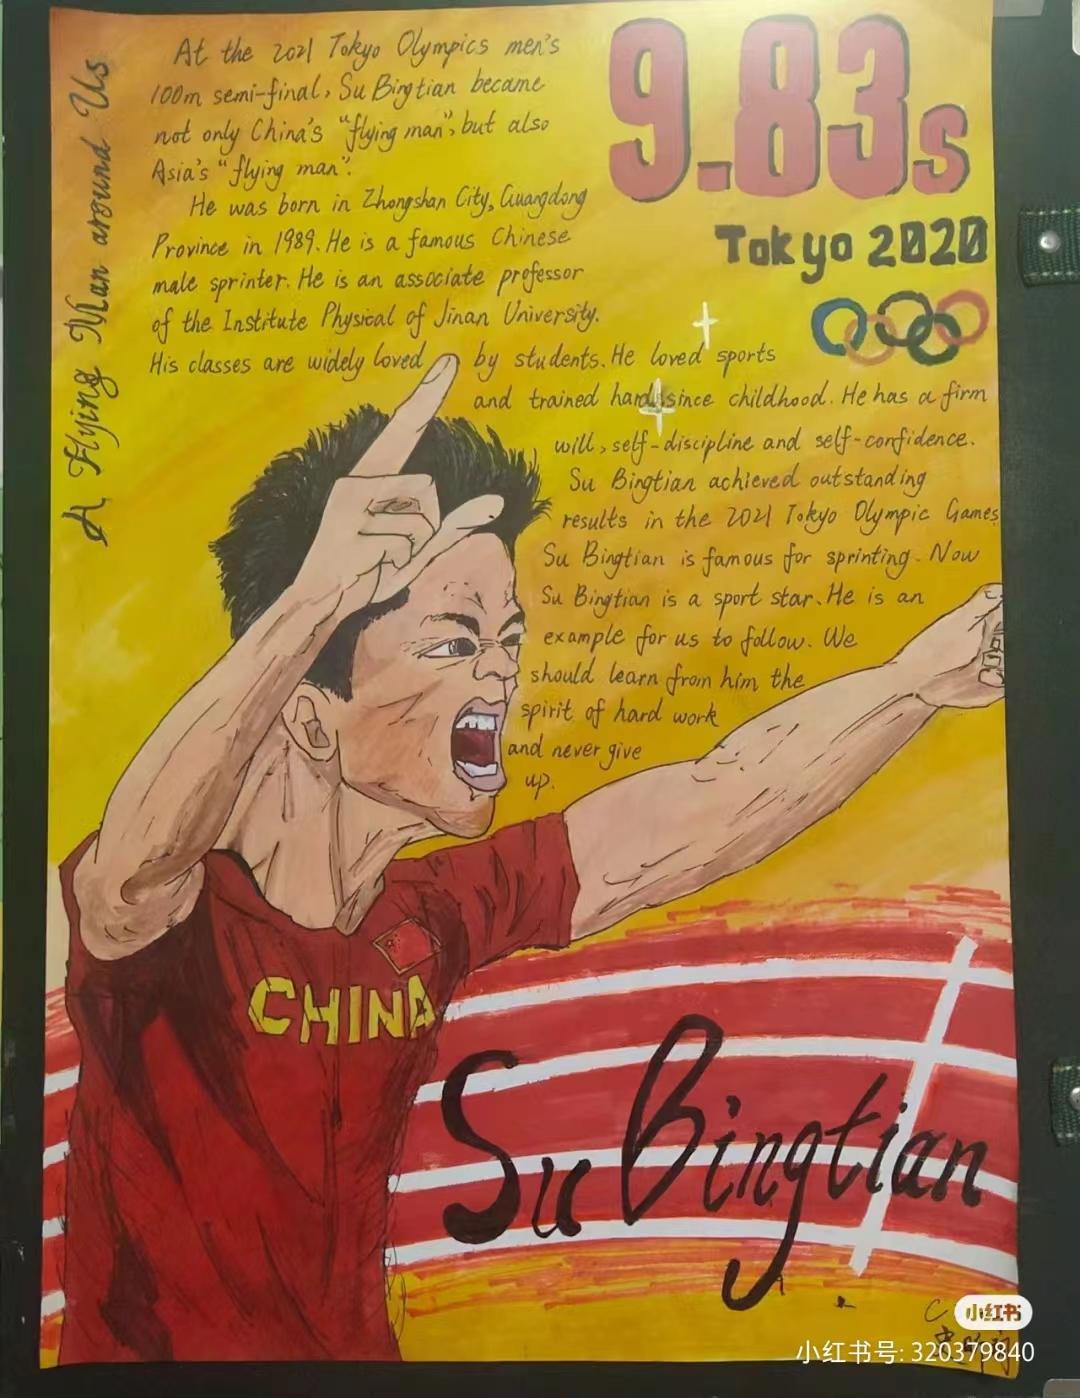 A Flying Man around Us
At the 2021 Tokyo Olympics men's
100m semi-final, Su Bingtian became
not only China's "flying man", but also
Asia's "flying man".
He was born in Zhongshan City, Guangdong
Province in 1989. He is a famous Chinese
male sprinter. He is an associate professor
of the Institute Physical of Jinan University.
His classes are widely loved by students. He loved sports
and trained hard since childhood. He has a firm
will, self-discipline and self-confidence.
Su Bingtian achieved outstanding
results in the 2021 Tokyo Olympic Games
Su Bingtian is famous for sprinting. Now
Su Bingtian is a sport star. He is an
example for us to follow. We
should learn from him the
spirit of hard work
and never give
up.
9.83s
Tokyo 2020
CHINA
Su Bingtian
小红书
小红书号: 320379840